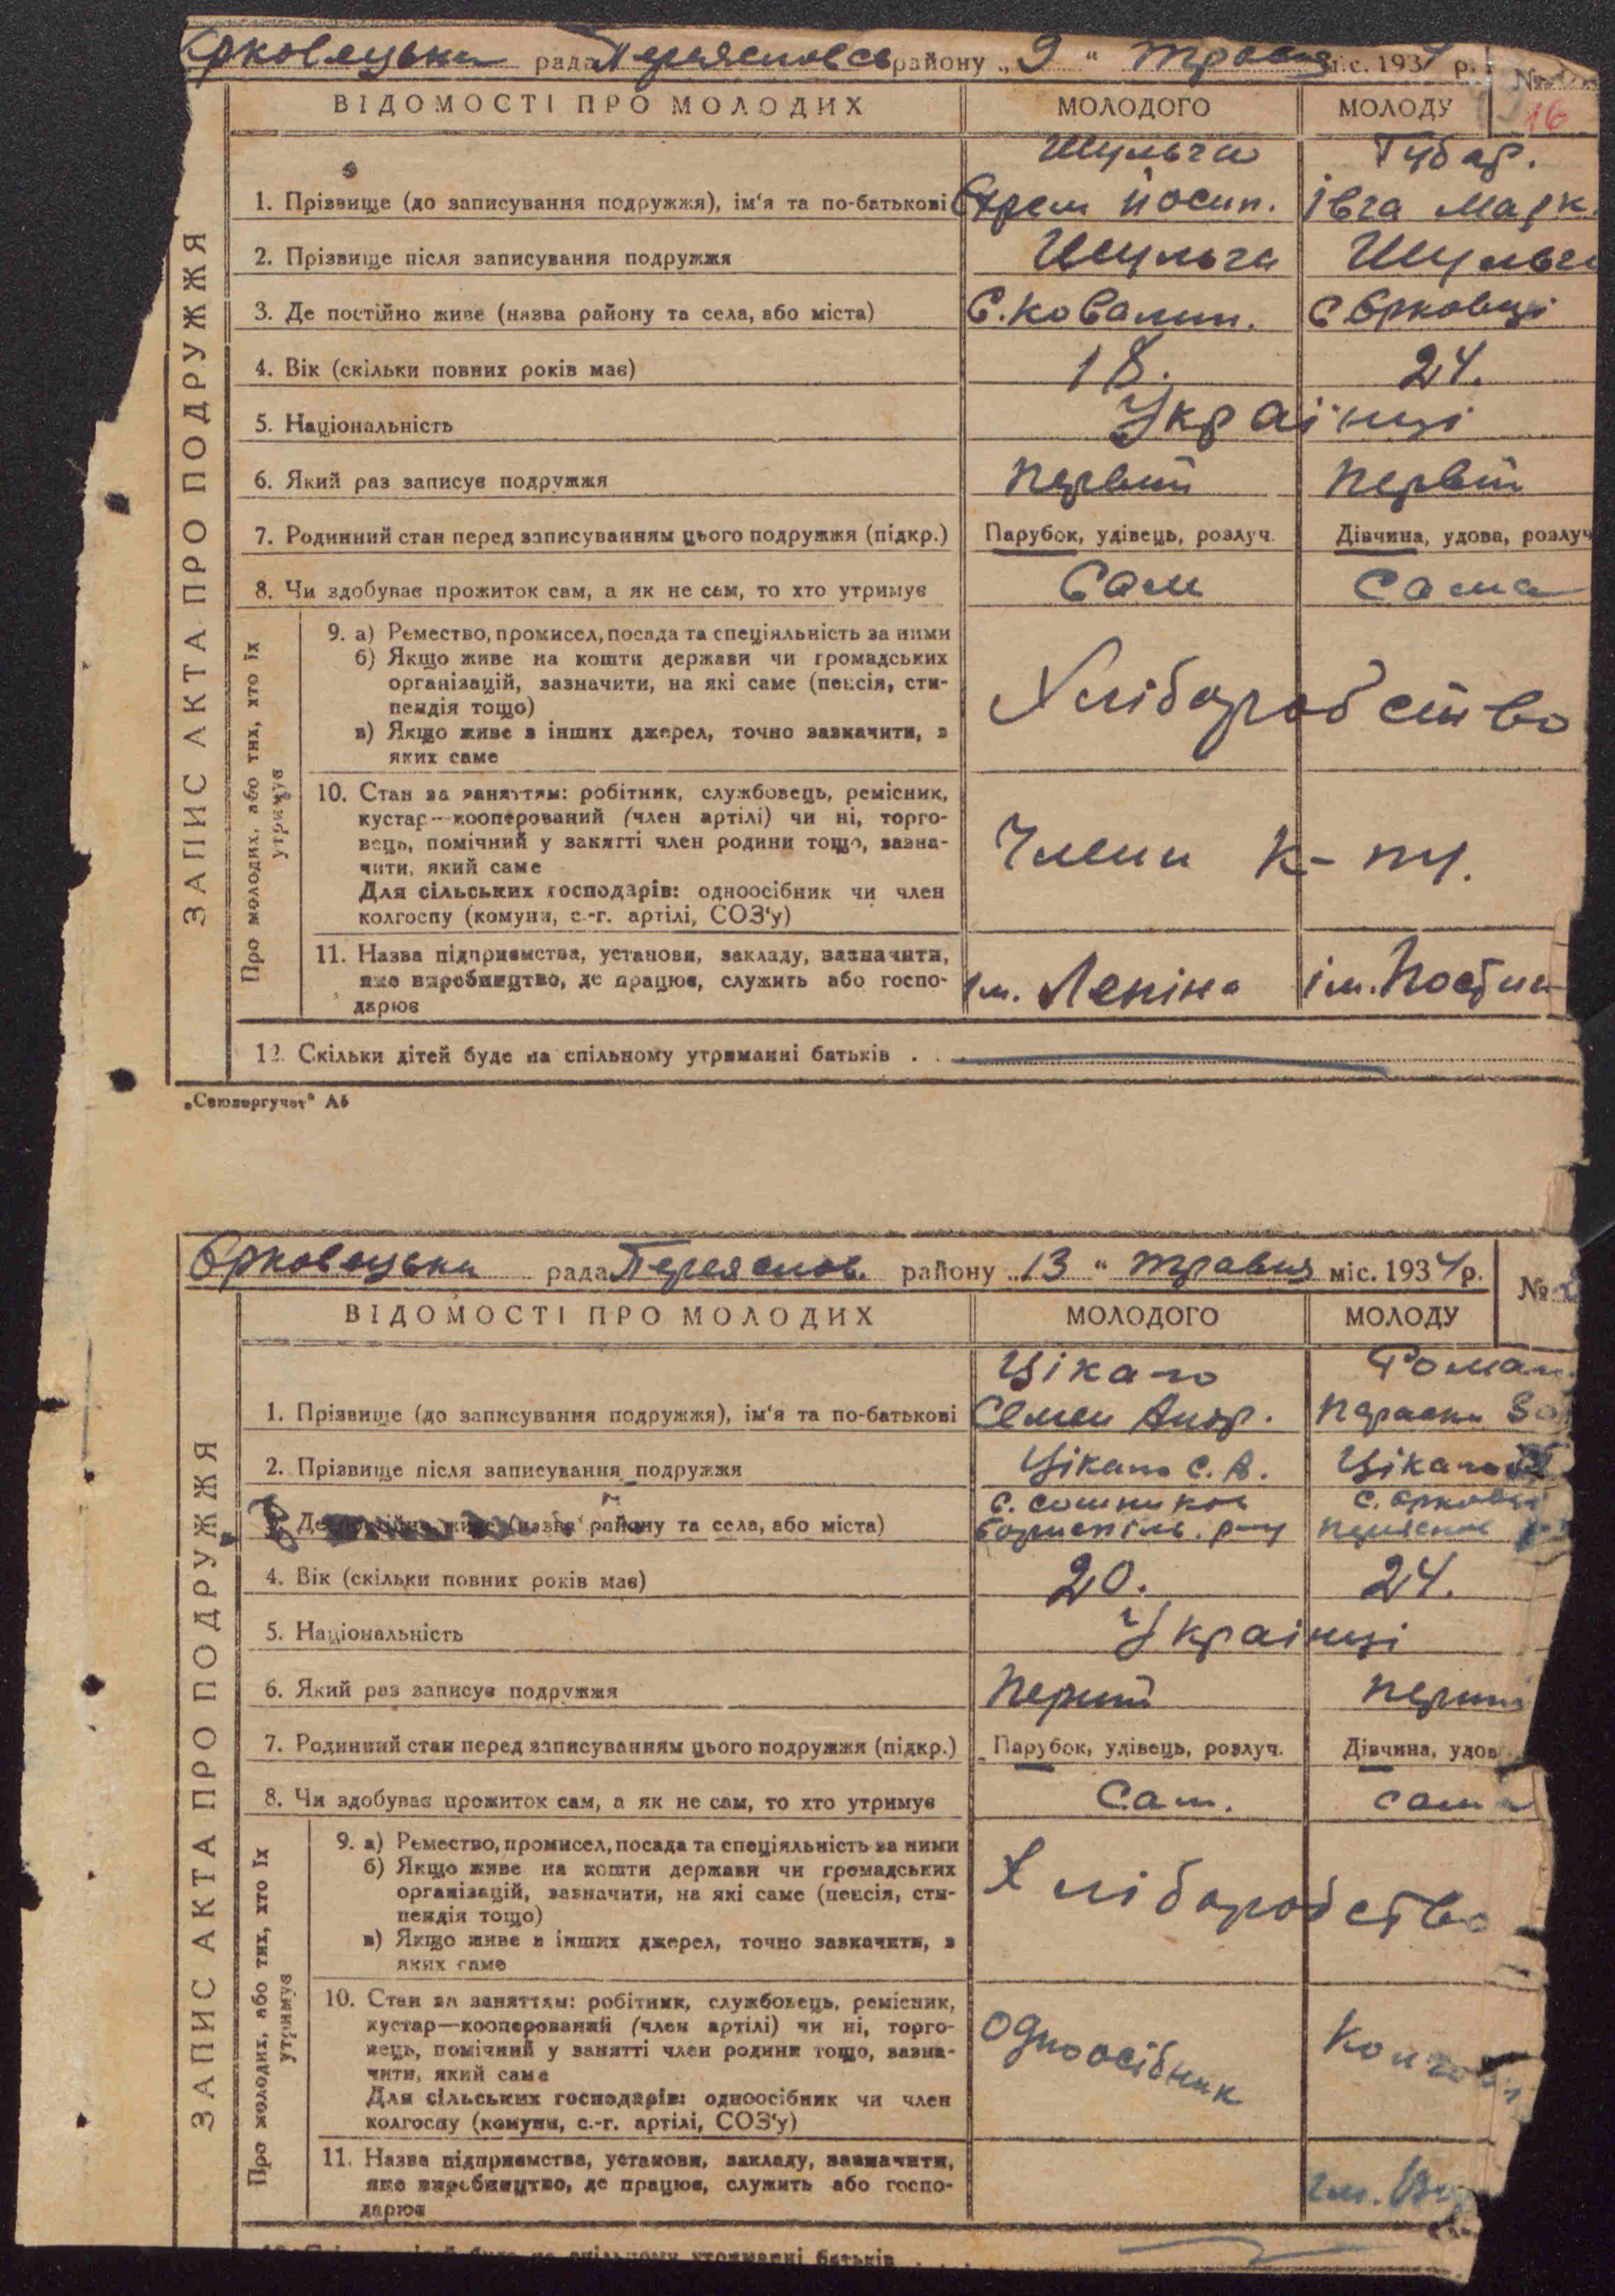 Єрковецька рада Переяславськ району „9“ травня міс. 1934 р. №
16
ВІДОМОСТІ ПРО МОЛОДИХ МОЛОДОГО МОЛОДУ
ЗАПИС АКТА ПРО ПОДРУЖЖЯ
Шульга Губар.
1. Прізвище (до записування подружжя), ім'я та по-батькові Єхрем Йосип. Івга Марк.
2. Прізвище після записування подружжя Шульга Шульга
3. Де постійно живе (назва району та села, або міста) С. Ковалин. С Єрковці
4. Вік (скільки повних років має) 18. 24.
5. Національність Українці
6. Який раз записує подружжя Первий Первий
7. Родинний стан перед записуванням цього подружжя (підкр.) Парубок, удівець, розлуч. Дівчина, удова, розлуч
8. Чи здобуває прожиток сам, а як не сам, то хто утримує Сам Сама
Про молодих, або тих, хто їх утримує
9. а) Ремество, промисел, посада та спеціяльність за ними
б) Якщо живе на кошти держави чи громадських
організацій, зазначити, на які саме (пенсія, сти-
пендія тощо)
Хліборобство
в) Якщо живе з інших джерел, точно зазначити, з
яких саме
10. Стан за заняттям: робітник, службовець, ремісник,
кустар—кооперований (член артілі) чи ні, торго-
вець, помічний у занятті член родини тощо, зазна-
чити, який саме
Члени к-пу.
Для сільських господарів: одноосібник чи член
колгоспу (комуни, с.-г. артілі, СОЗ'у)
11. Назва підприємства, установи, закладу, зазначити,
яке виробництво, де працює, служить або госпо-
дарює
ім. Леніна ім.
12. Скільки дітей буде на спільному утриманні батьків . .
„Союзоргучет“ А5
Єрковецька рада Переяслов. району „13“ травня міс. 1934 р. №
ВІДОМОСТІ ПРО МОЛОДИХ МОЛОДОГО МОЛОДУ
ЗАПИС АКТА ПРО ПОДРУЖЖЯ
Цікало Роман
1. Прізвище (до записування подружжя), ім'я та по-батькові Семен Андр. Параска
2. Прізвище після записування подружжя Цікало С. А. Цікало
с. Сошників с. Єрковці
3. Де постійно живе (назва району та села, або міста) Бориспіль. р-ну Переяслов
4. Вік (скільки повних років має) 20. 24.
5. Національність Українці
6. Який раз записує подружжя Перший перши
7. Родинний стан перед записуванням цього подружжя (підкр.) Парубок, удівець, розлуч. Дівчина, удов
8. Чи здобуває прожиток сам, а як не сам, то хто утримує Сам. сама
Про молодих, або тих, хто їх утримує
9. а) Ремество, промисел, посада та спеціяльність за ними
б) Якщо живе на кошти держави чи громадських
організацій, зазначити, на які саме (пенсія, сти-
пендія тощо)
Хліборобство
в) Якщо живе з інших джерел, точно зазначити, з
яких саме
10. Стан за заняттям: робітник, службовець, ремісник,
кустар—кооперований (член артілі) чи ні, торго-
вець, помічний у занятті член родини тощо, зазна-
чити, який саме
Одноосібник
Для сільських господарів: одноосібник чи член
колгоспу (комуни, с.-г. артілі, СОЗ'у)
11. Назва підприємства, установи, закладу, зазначити,
яке виробництво, де працює, служить або госпо-
дарює
ім.
12. Скільки дітей буде на спільному утриманні батьків . .